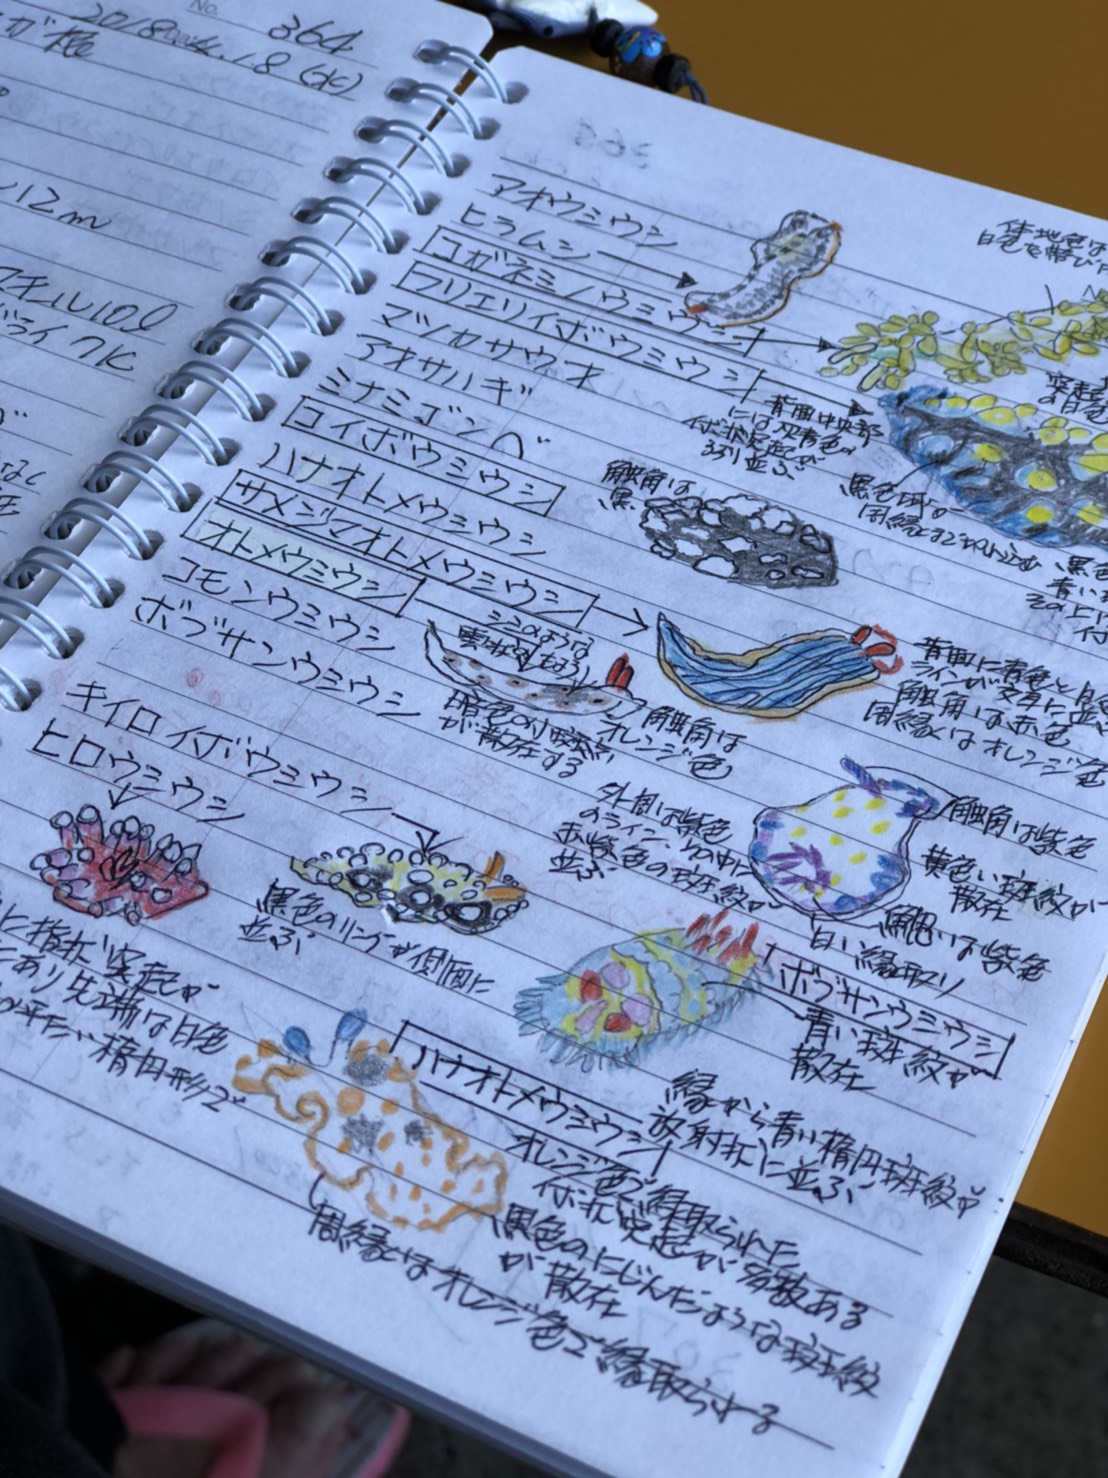 No. 364
2018
(水)
12m
10ℓ
ドライ 7K
アオウミウシ
ヒラムシ
コガネミノウミウシ
フリエリイボウミウシ
マツカサウオ
アオサハギ
ミナミゴンベ
コイボウミウシ
ハナオトメウミウシ
サメジマオトメウミウシ
オトメウミウシ
コモンウミウシ
ボブサンウミウシ
キイロイボウミウシ
ヒロウミウシ
体地色は
白色を帯び
背面中央部
には灰青色の
イボ状突起が
並ぶ
黒色域が
周縁まで
黒色
青い
触角は
黒
シミのような
雲状
暗色の小斑点
が散在する
触角は
オレンジ色
背面に青色と白
ラインが交互に並ぶ
触角は赤色
周縁はオレンジ色
外側は紫色
のライン、その中に
赤紫色の斑紋が
並ぶ
触角は紫色
黄色い斑紋が
散在
鰓は紫色
白い縁取り
黒色のリングが側面に
並ぶ
に指状突起が
あり先端は白色
平たい楕円形で
ボブサンウミウシ
青い斑紋が
散在
縁から青い楕円斑紋が
放射状に並ぶ
ハナオトメウミウシ
オレンジ色で縁取られた
イボ状突起が多数ある
黒色のにじんだような斑紋
が散在
周縁はオレンジ色で縁取られる